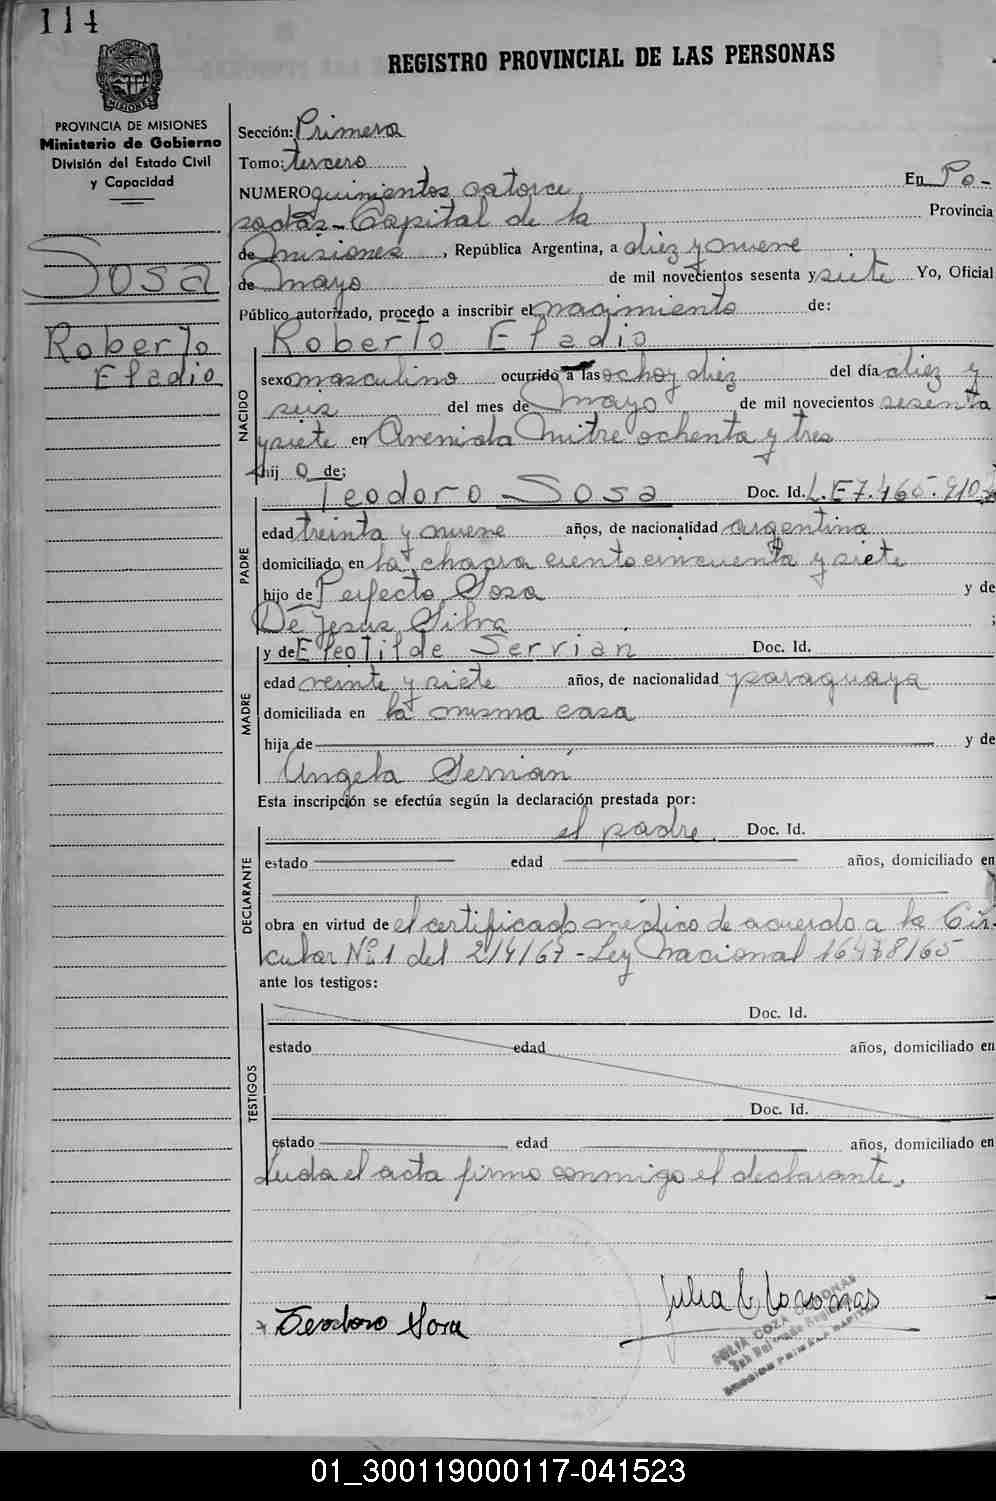 114
REGISTRO PROVINCIAL DE LAS PERSONAS
PROVINCIA DE MISIONES
Ministerio de Gobierno
División del Estado Civil
y Capacidad
Sosa
Roberto
Eladio
Sección: Primera
Tomo: tercero
NUMERO quinientos catorce En Po-
sadas - Capital de la Provincia
de Misiones, República Argentina, a diez y nueve
de Mayo de mil novecientos sesenta y siete Yo, Oficial
Público autorizado, procedo a inscribir el nacimiento de:
Roberto Eladio
NACIDO
sexo masculino ocurrido a las ocho y diez del día diez y
seis del mes de Mayo de mil novecientos sesenta
y siete en Avenida Mitre ochenta y tres
hij o de:
Teodoro Sosa Doc. Id. L.E 7.465.910
PADRE
edad treinta y nueve años, de nacionalidad argentina
domiciliado en la chacra ciento cincuenta y siete
hijo de Perfecto Sosa y de
De Jesús Silva ;
y de Eleotilde Servian Doc. Id.
MADRE
edad veinte y siete años, de nacionalidad paraguaya
domiciliada en la misma casa
hija de y de
Angela Servian
Esta inscripción se efectúa según la declaración prestada por:
el padre. Doc. Id.
DECLARANTE
estado edad años, domiciliado en
obra en virtud de el certificado médico de acuerdo a la Cir-
cular Nº 1 del 2/4/67 - Ley Nacional 16478/65
ante los testigos:
Doc. Id.
TESTIGOS
estado edad años, domiciliado en
Doc. Id.
estado edad años, domiciliado en
Leida el acta firmo conmigo el declarante.
Teodoro Sosa
01_300119000117-041523